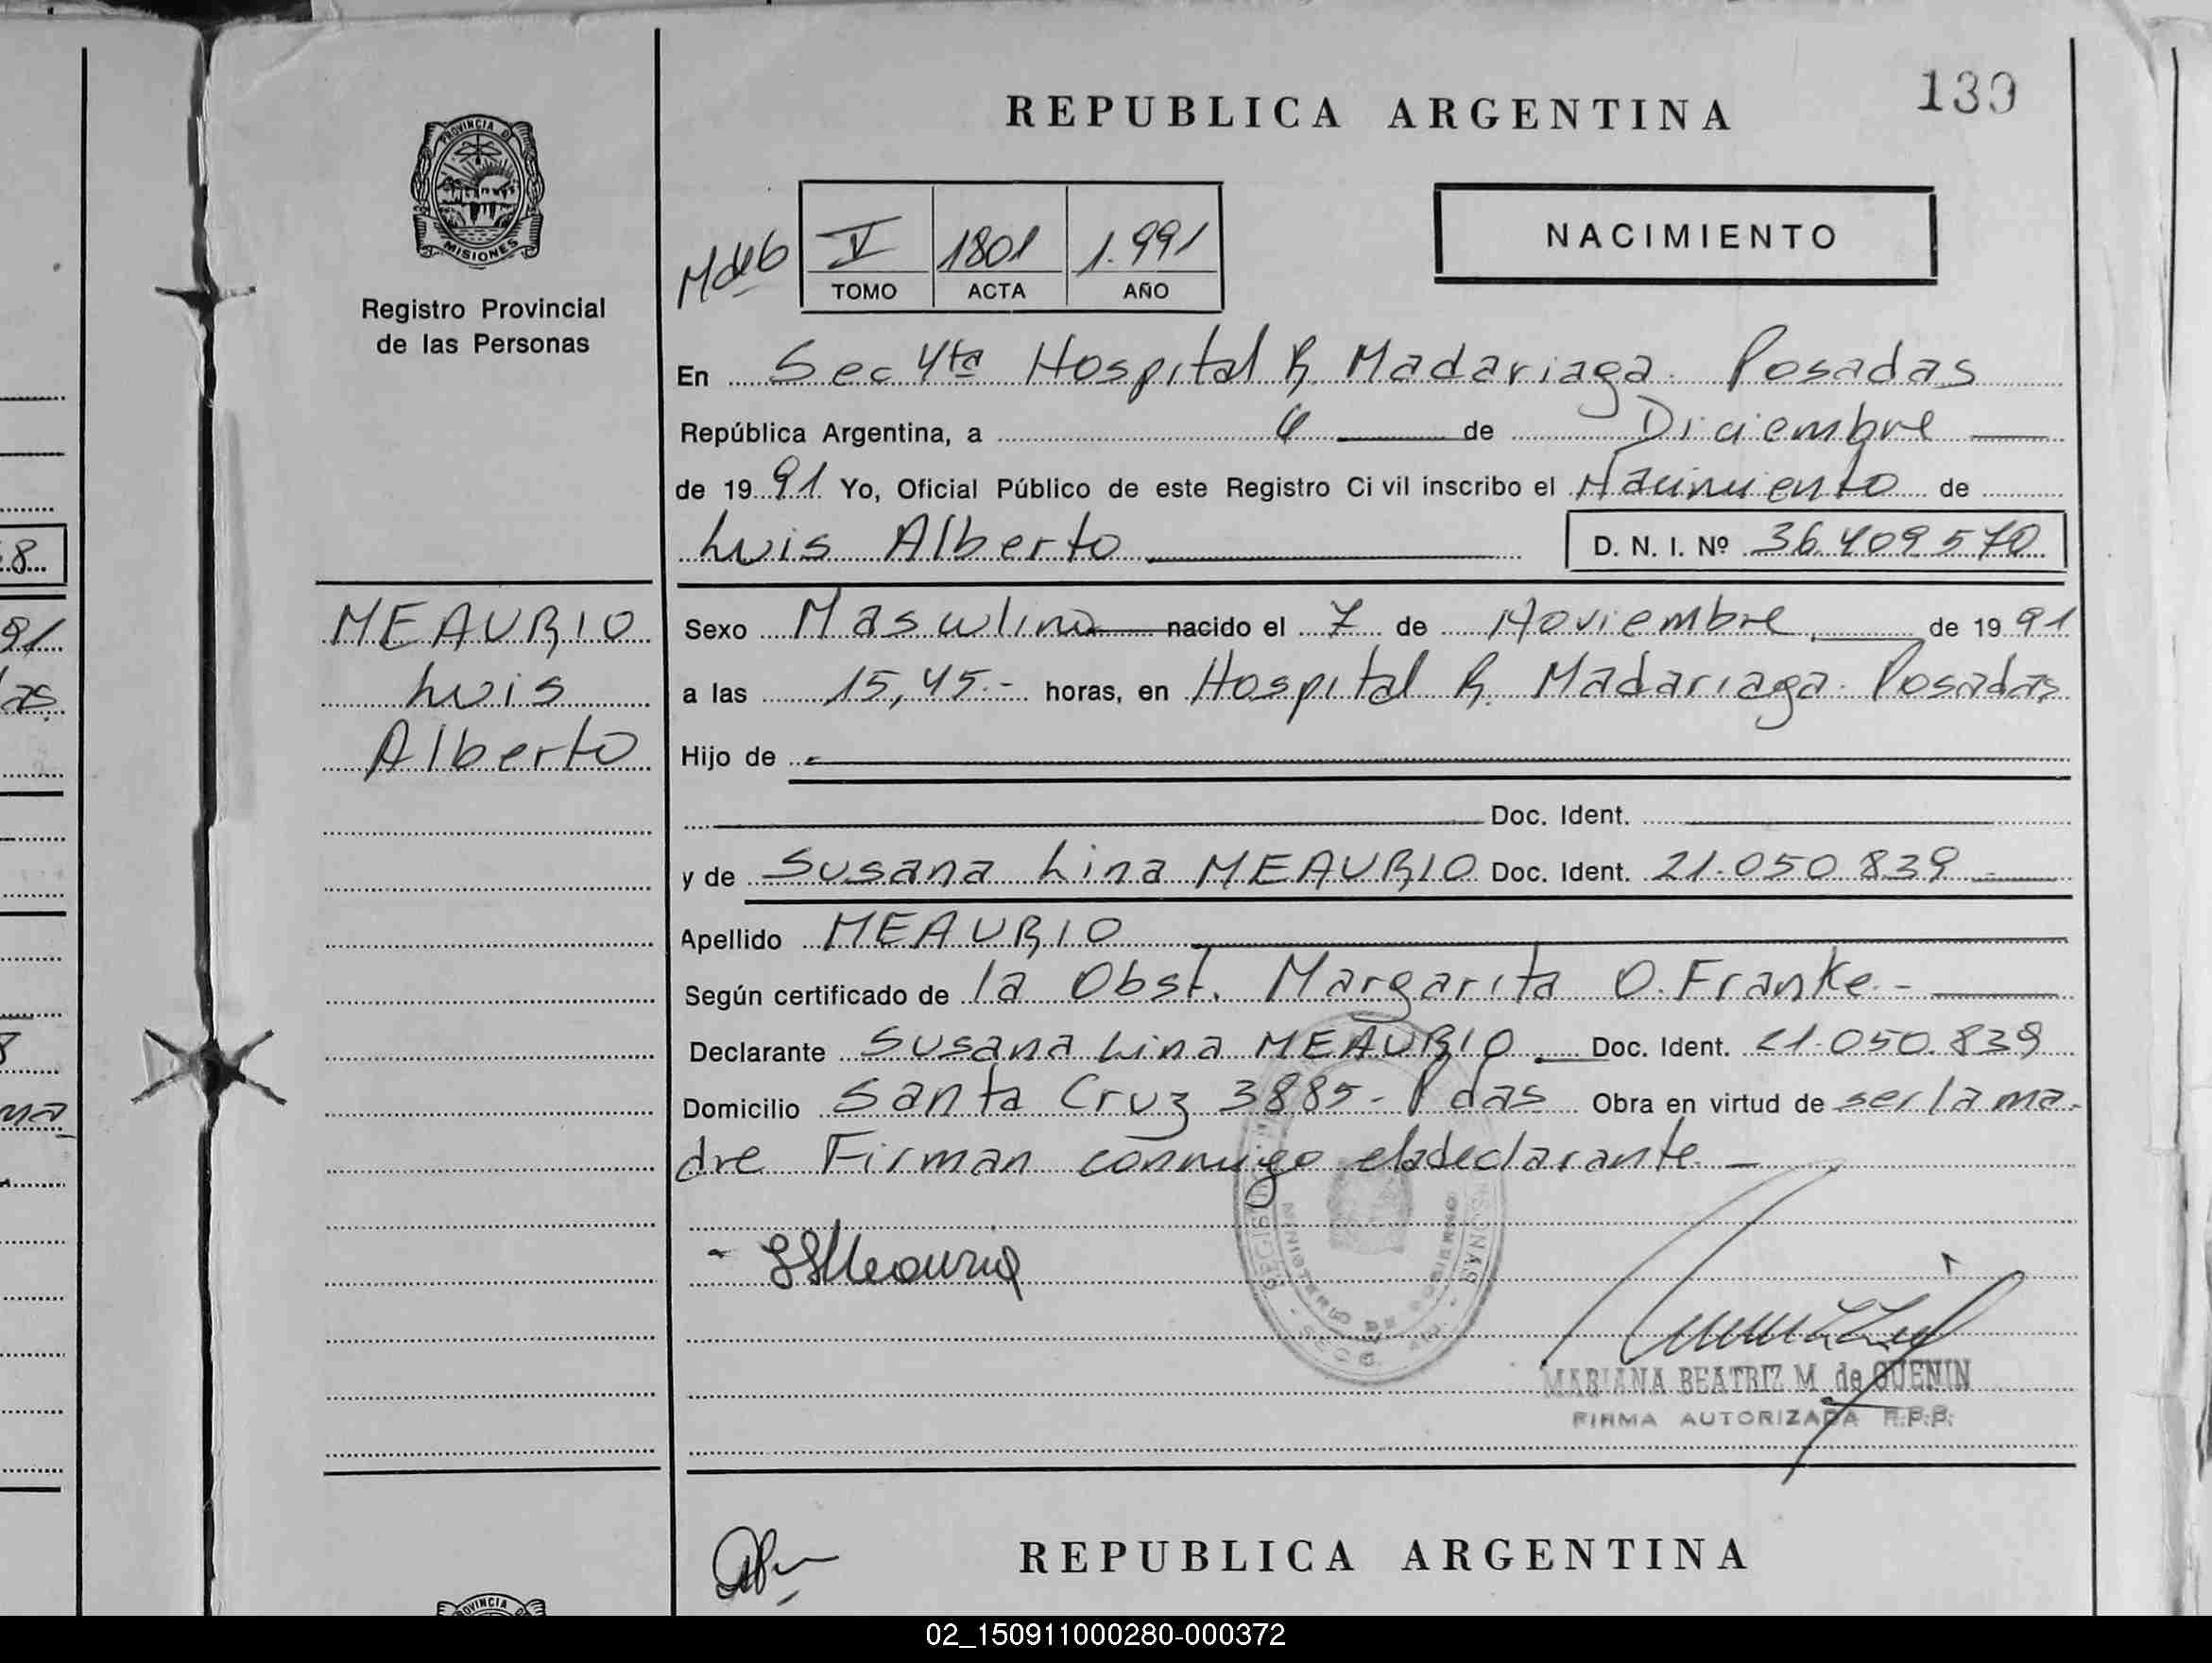 139
REPUBLICA ARGENTINA
PROVINCIA DE
MISIONES
Registro Provincial
de las Personas
V 1801 1.991
TOMO ACTA AÑO
NACIMIENTO
En Sec 4ta Hospital R. Madariaga. Posadas
República Argentina, a 6 de Diciembre
de 1991 Yo, Oficial Público de este Registro Civil inscribo el Nacimiento de
Luis Alberto D. N. I. Nº 36.409570
MEAURIO
Luis
Alberto
Sexo Masculino nacido el 7 de Noviembre de 1991
a las 15,45.- horas, en Hospital R. Madariaga. Posadas
Hijo de
Doc. Ident.
y de Susana Lina MEAURIO Doc. Ident. 21.050.839
Apellido MEAURIO
Según certificado de la Obst. Margarita O. Franke.-
Declarante Susana Lina MEAURIO Doc. Ident. 21.050.839
Domicilio Santa Cruz 3885- Pdas Obra en virtud de ser la ma-
dre Firman conmigo la declarante.-
MINISTERIO DE GOBIERNO
MARIANA BEATRIZ M. de GUENIN
FIRMA AUTORIZADA R.P.P.
REPUBLICA ARGENTINA
02_150911000280-000372